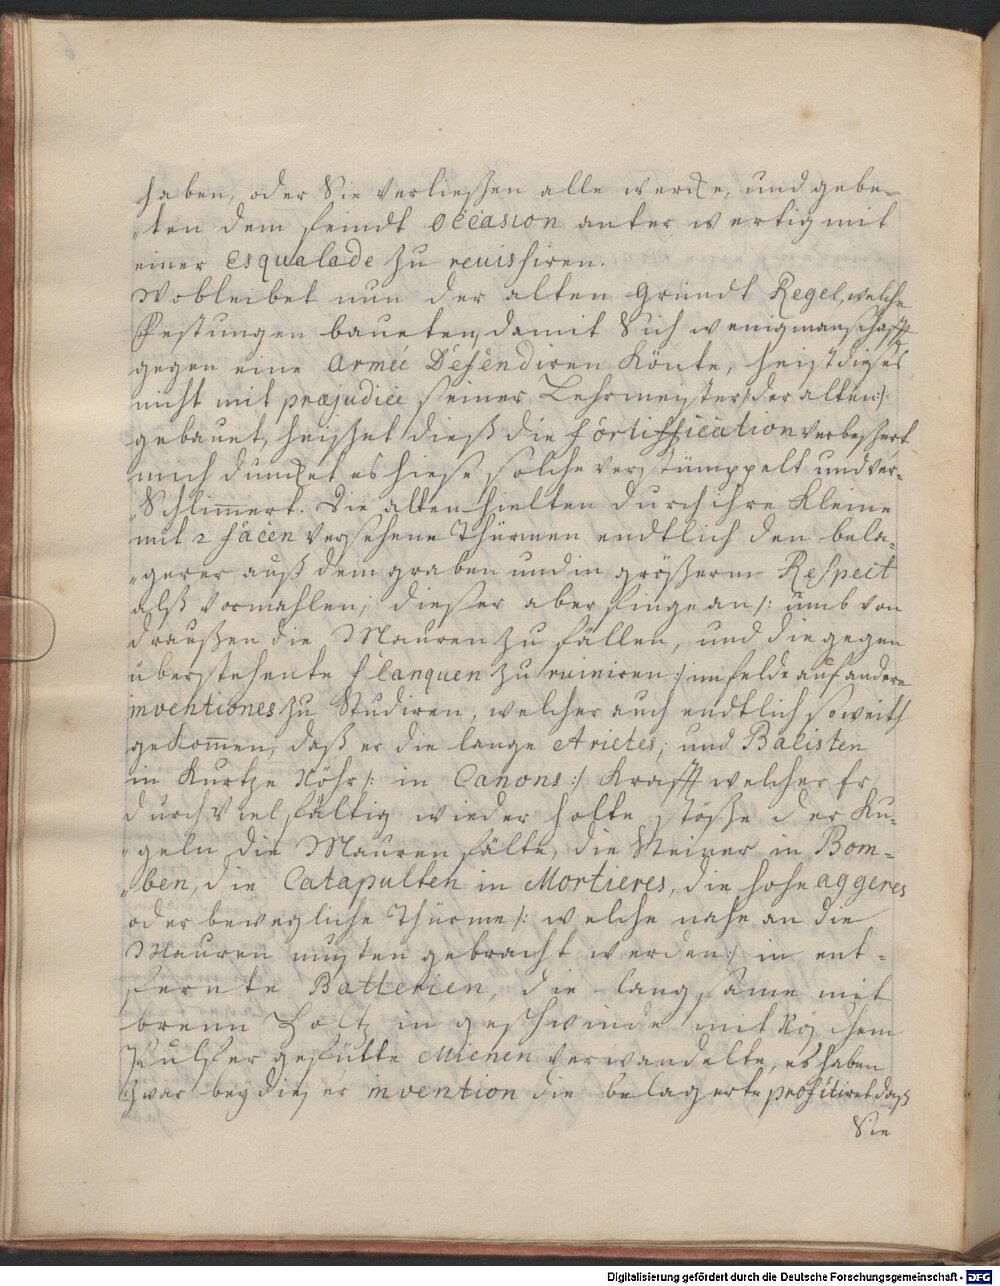 haben, oder Sie verließen alle wercke, und gebe-
„ten dem feindt occasion anterwertig mit
einer Esqualade zu reuissiren.
Wo bleibet nun der alten Grundt Regel, welche
Festungen baueten, damit Sich wenig manschafft
gegen eine Armée Defendiren Könte, heist dieses
nicht mit præjudice seiner Lehrmeister /: der alten :/
gebauet, heisset dieß die fortiffication verbessert
mich duncket es hiese, solche verstümppelt und ver-
„Schlimmert. Die alten hielten durch ihre Kleine
mit 2 facen versehene Thürmen endtlich den bela-
„gerer auß dem graben und in größerm Respect
alß vormahlen; dießer aber finge an /: umb von
draußen die Mauren zu fällen, und die gegen
überstehente flanquen zu ruiniren :/ im felde auf andere
inventiones zu Studiren, welcher auch endtlich so weith
gekommen, daß er die lange Arietes, und Balisten
in Kurtze Röhr /: in Canons :/ Krafft welcher Er
durch vielfältig wiederholte stöße der Ku-
„geln die Mauren fälte, die Steiner in Bom-
„ben, die Catapulten in Mortieres, die hohe aggeres
oder bewegliche Thürme /: welche nahe an die
Mauren musten gebracht werden :/ in ent-
fernte Batterien, die langsame mit
brenn Holtz in geschwinde mit
Pulffer gefülte Mienen verwandelte, es haben
zwar bey dieser invention die belagerte profitiret daß
Sie
Digitalisierung gefördert durch die Deutsche Forschungsgemeinschaft - DFG